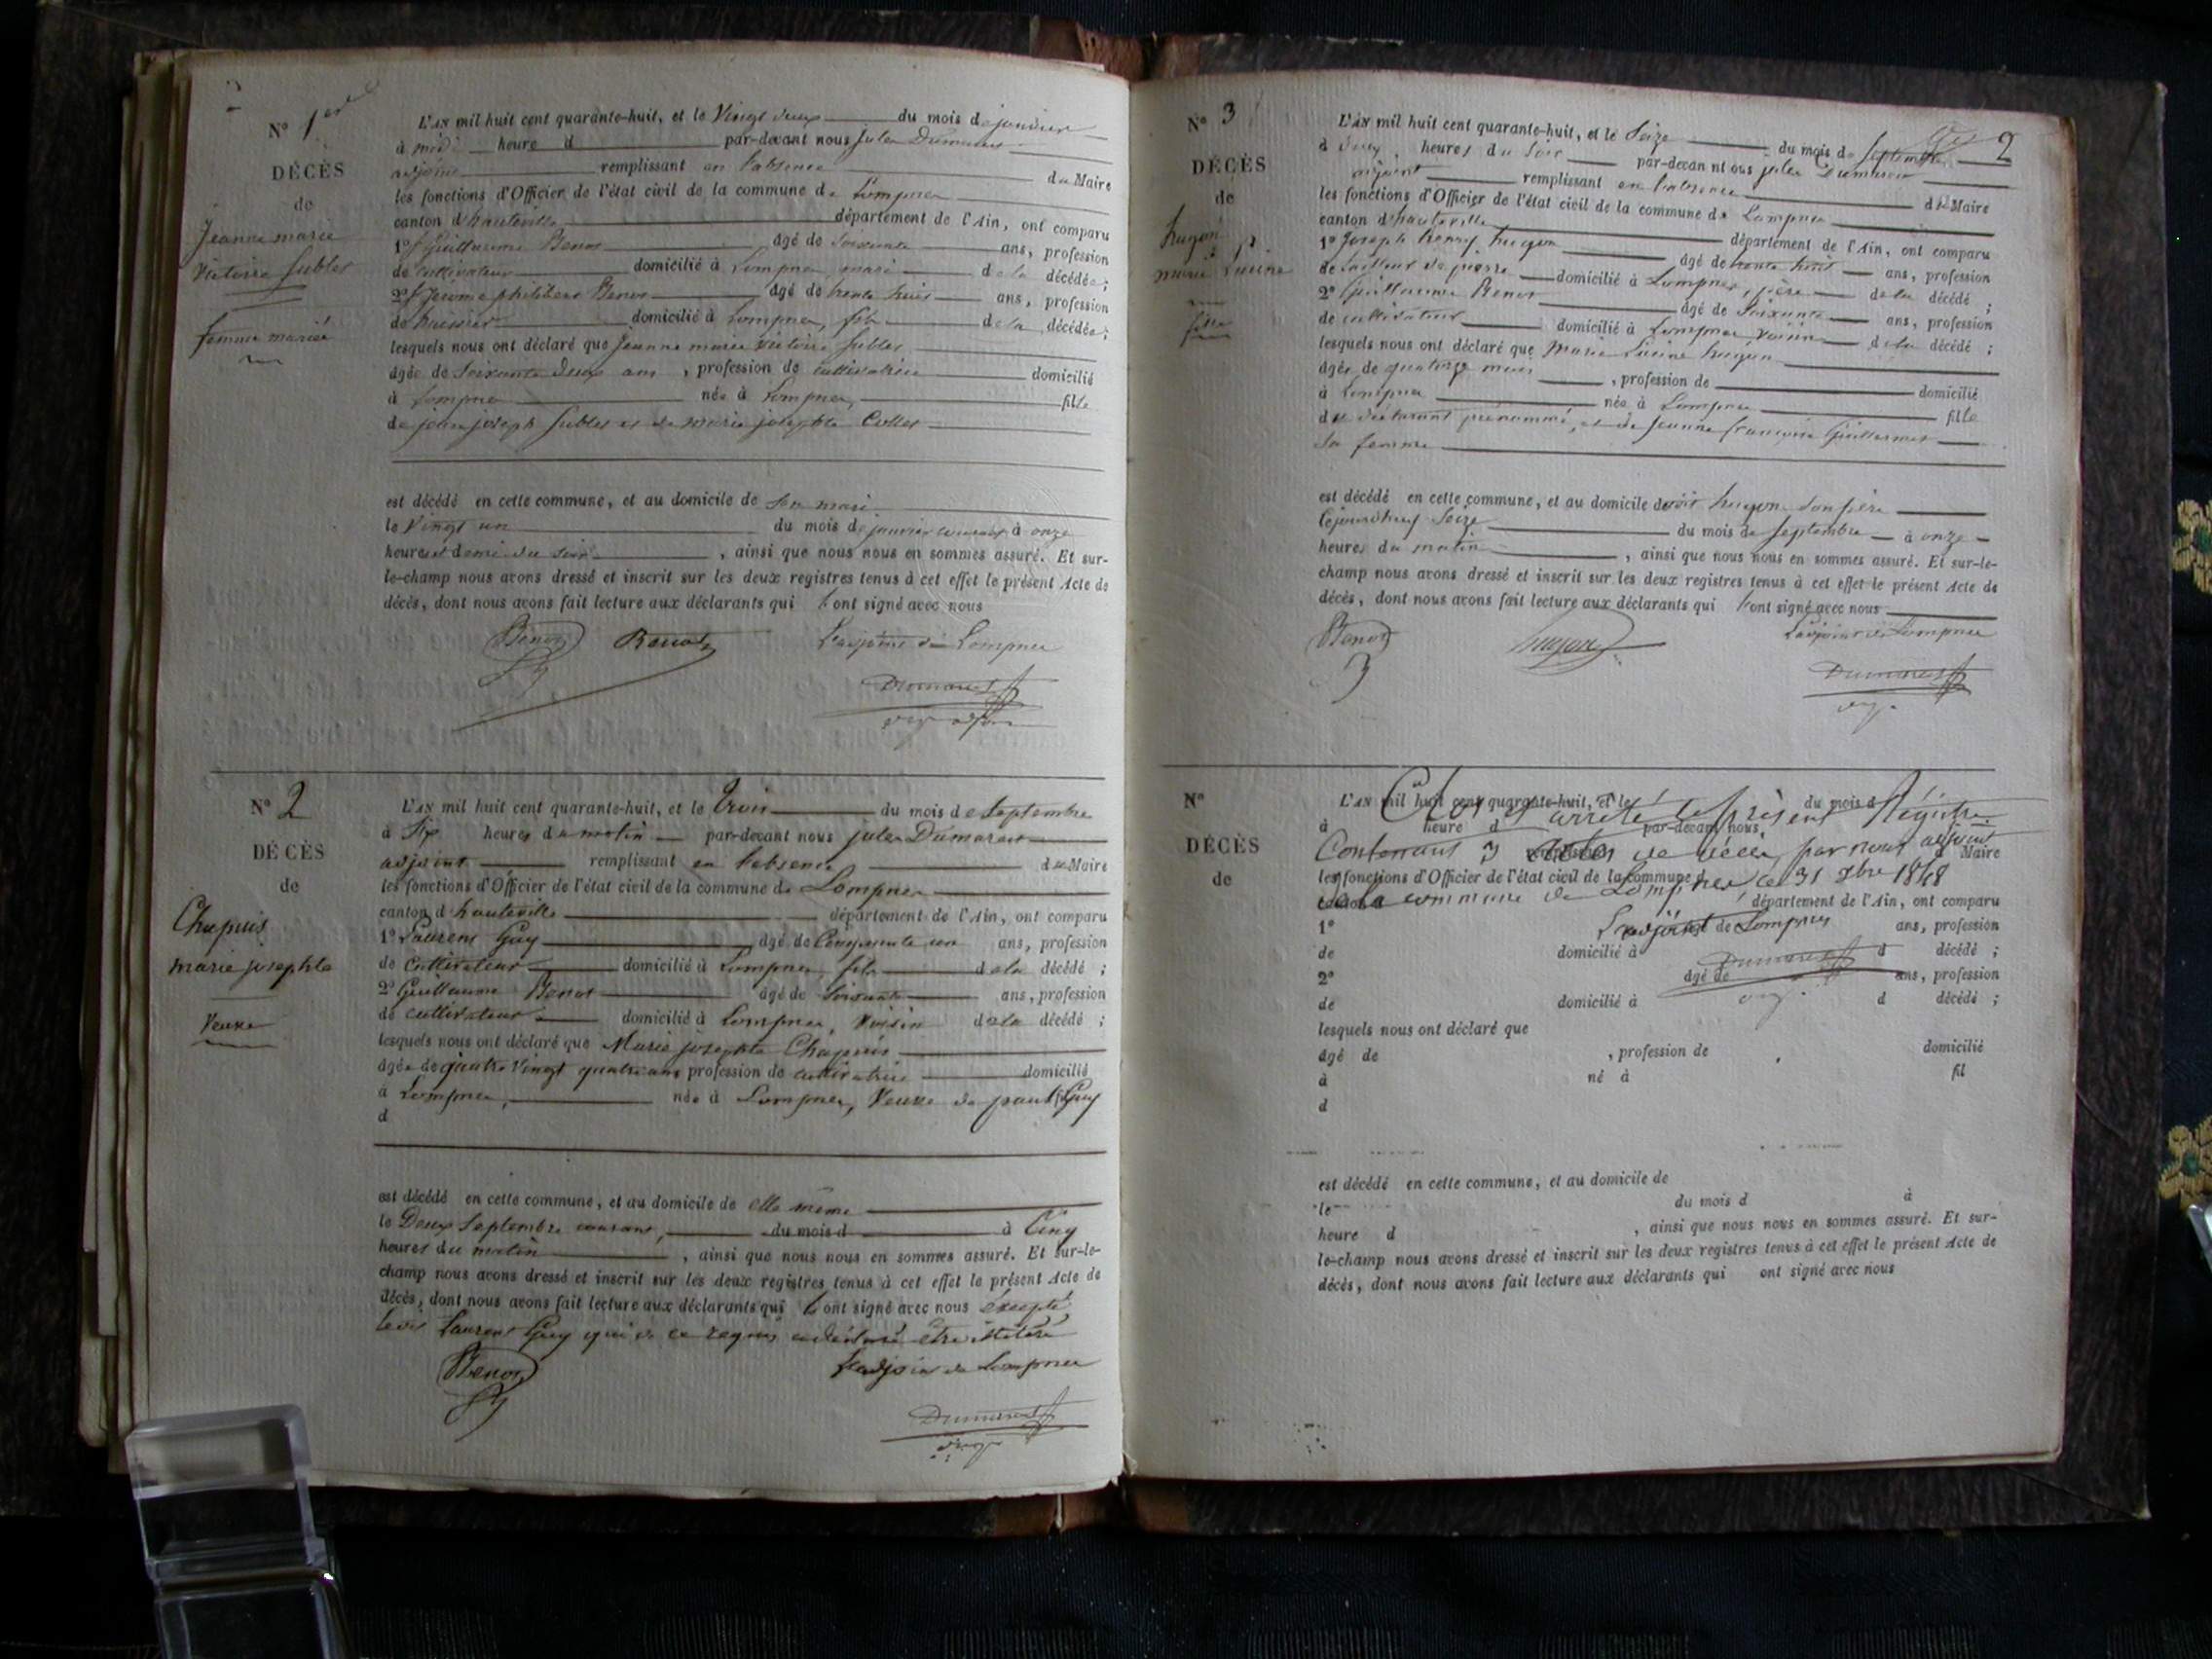 2
N° 1er
DÉCÈS
de
Jeanne marie
Victoire Sublet
femme mariée
L'AN mil huit cent quarante-huit, et le Vingt deux du mois de janvier
à midi heure d par-devant nous jules Dumarest
adjoint remplissant en l'absence du Maire
les fonctions d'Officier de l'état civil de la commune de Lompnes
canton d'hauteville département de l'Ain, ont comparu
1° Guillaume Benoz âgé de Soixante ans, profession
de cultivateur domicilié à Lompnes, mari de la décédée;
2° Jérôme philibert Benoz âgé de trente huit ans, profession
de huissier domicilié à Lompnes, fils de la décédée;
lesquels nous ont déclaré que Jeanne marie victoire Sublet
âgée de Soixante deux ans, profession de cultivatrice domicilié
à Lompnes née à Lompnes, fille
de jean joseph Sublet et de marie josephte Collet
est décédé en cette commune, et au domicile de son mari
le Vingt un du mois de janvier courant à onze
heures et demi du soir, ainsi que nous nous en sommes assuré. Et sur-
le-champ nous avons dressé et inscrit sur les deux registres tenus à cet effet le présent Acte de
décès, dont nous avons fait lecture aux déclarants qui l'ont signé avec nous
Benoz Benoz L'adjoint de Lompnes
Dumarest
adjoint
N° 2
DÉCÈS
de
Chapuis
marie josephte
Veuve
L'AN mil huit cent quarante-huit, et le trois du mois de Septembre
à Six heures du matin par-devant nous jules Dumarest
adjoint remplissant en l'absence du Maire
les fonctions d'Officier de l'état civil de la commune de Lompnes
canton d'hauteville département de l'Ain, ont comparu
1° Laurent Guy âgé de Cinquante un ans, profession
de Cultivateur domicilié à Lompnes, fils de la décédé;
2° Guillaume Benoz âgé de Soixante ans, profession
de cultivateur domicilié à Lompnes, Voisin de la décédé;
lesquels nous ont déclaré que Marie josephte Chapuis
âgée de quatre Vingt quatre ans profession de cultivatrice domicilié
à Lompnes, née à Lompnes, Veuve de paul Guy
d
est décédé en cette commune, et au domicile de elle même
le Deux Septembre courant, du mois d à Cinq
heures du matin, ainsi que nous nous en sommes assuré. Et sur-le-
champ nous avons dressé et inscrit sur les deux registres tenus à cet effet le présent Acte de
décès, dont nous avons fait lecture aux déclarants qui l'ont signé avec nous excepté
ledit Laurent Guy qui de ce requis a déclaré être illitéré
Benoz L'adjoint de Lompnes
Dumarest
2
N° 3
DÉCÈS
de
hugon
marie Lucine
fille
L'AN mil huit cent quarante-huit, et le Seize du mois de Septembre
à deux heures du Soir par-devant nous jules Dumarest
adjoint remplissant en l'absence du Maire
les fonctions d'Officier de l'état civil de la commune de Lompnes
canton d'hauteville département de l'Ain, ont comparu
1° Joseph henry hugon âgé de trente huit ans, profession
de tailleur de pierre domicilié à Lompnes, père de la décédé;
2° Guillaume Benoz âgé de Soixante ans, profession
de cultivateur domicilié à Lompnes voisin de la décédé;
lesquels nous ont déclaré que Marie Lucine hugon
âgée de quatorze mois, profession de domicilié
à Lompnes née à Lompnes fille
du déclarant prénommé, et de Jeanne françoise Guillermet
sa femme
est décédé en cette commune, et au domicile dudit hugon son père
cejourd'huy Seize du mois de Septembre à onze
heures du matin, ainsi que nous nous en sommes assuré. Et sur-le-
champ nous avons dressé et inscrit sur les deux registres tenus à cet effet le présent Acte de
décès, dont nous avons fait lecture aux déclarants qui l'ont signé avec nous
Benoz hugon L'adjoint de Lompnes
Dumarest
N°
DÉCÈS
de
L'AN mil huit cent quarante-huit, et le du mois d
Clos et arrêté le présent Régistre
à heure d par-devant nous,
Contenant 3 actes de décès, par nous adjoint
remplissant d Maire
les fonctions d'Officier de l'état civil de la commune d
de la commune de Lompnes, ce 31 Xbre 1848
canton d département de l'Ain, ont comparu
L'adjoint de Lompnes
1° ans, profession
de domicilié à d décédé;
Dumarest
2° âgé de ans, profession
de domicilié à d décédé;
lesquels nous ont déclaré que
âgé de , profession de domicilié
à né à fil
d
est décédé en cette commune, et au domicile de
le du mois d à
heure d , ainsi que nous nous en sommes assuré. Et sur-
le-champ nous avons dressé et inscrit sur les deux registres tenus à cet effet le présent Acte de
décès, dont nous avons fait lecture aux déclarants qui ont signé avec nous